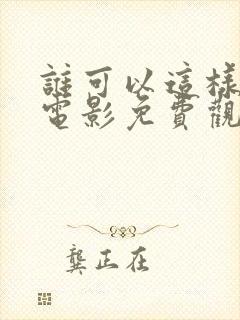 誰可以這樣
電影免費觀
龔正在